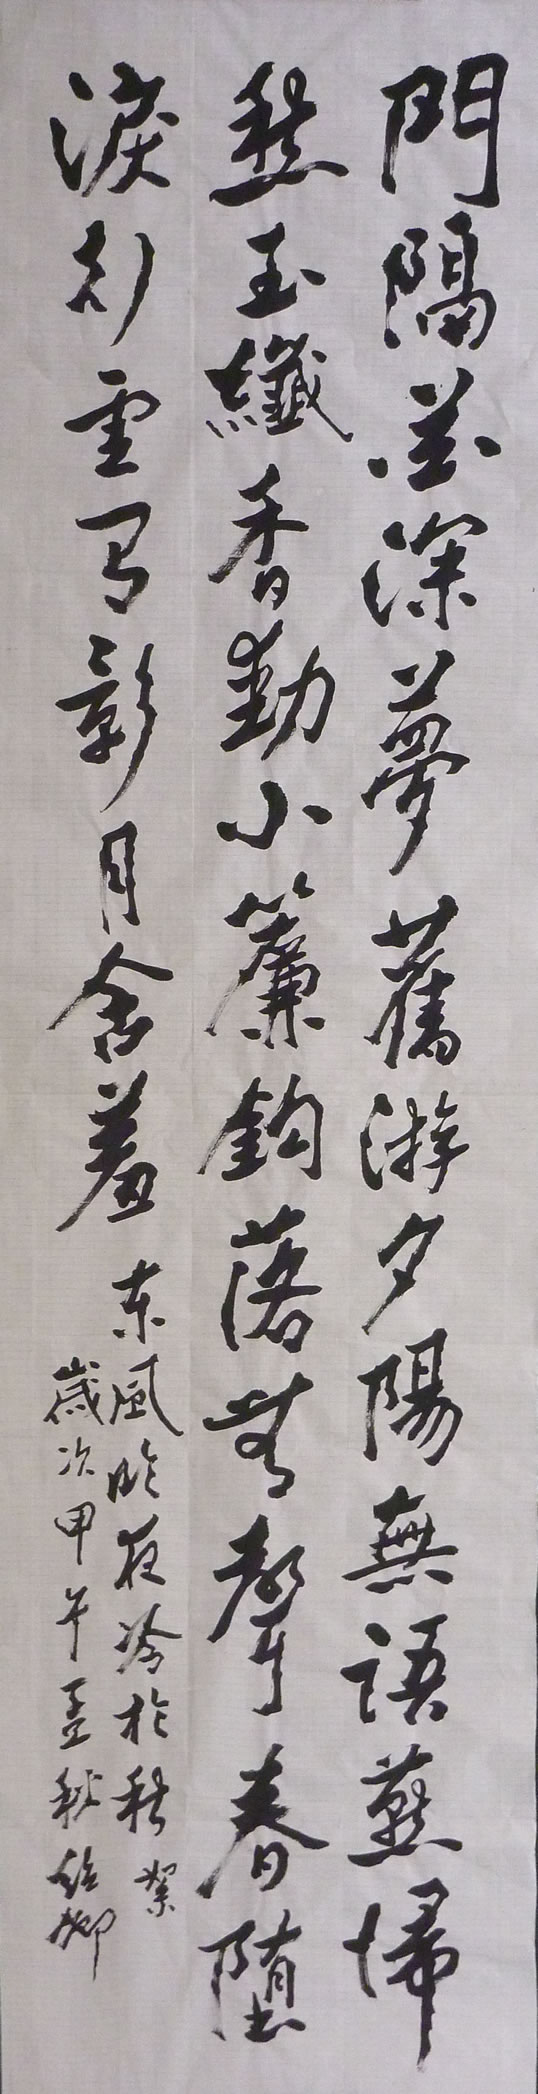 門隔花深夢舊游夕陽無語燕歸
愁玉纖香動小簾鈎落無聲春墮
淚行雲有影月含羞
東風臨夜冷於秋 絮
歲次甲午孟秋